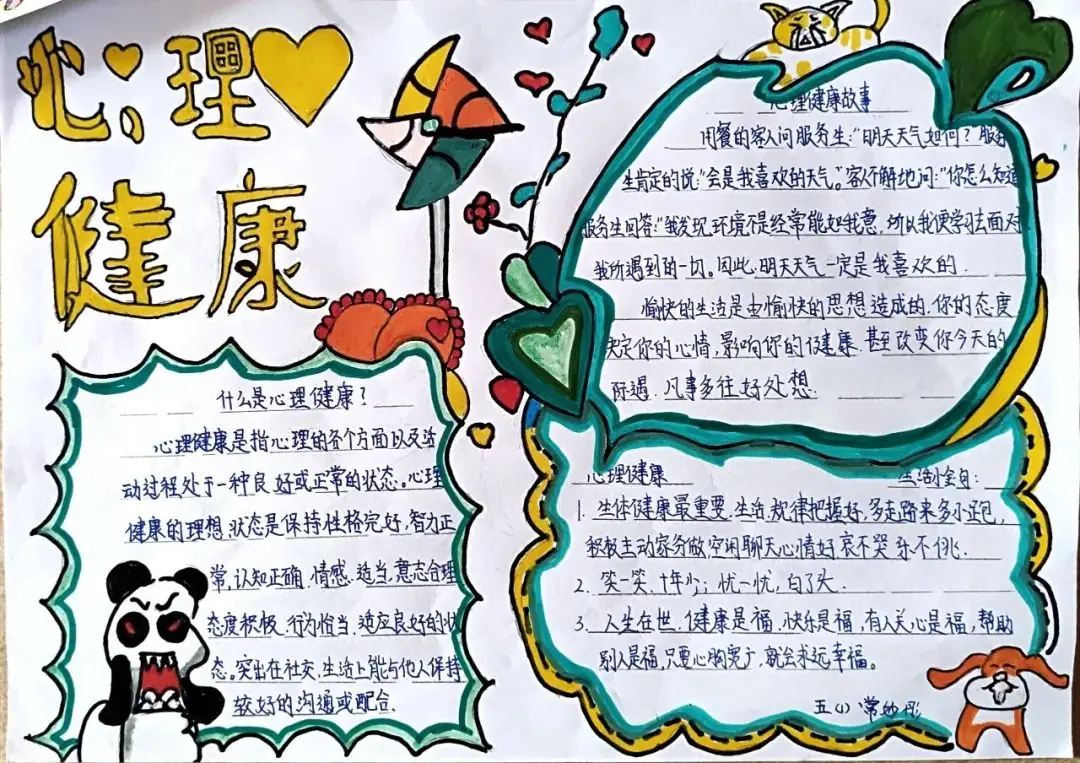 心理
健康
什么是心理健康？
心理健康是指心理的各个方面以及活
动过程处于一种良好或正常的状态。心理
健康的理想状态是保持性格完好，智力正
常，认知正确，情感、适当，意态合理
态度积极、行为恰当、适应良好的状
态。突出在社交、生活上能与他人保持
较好的沟通或配合．
心理健康故事
用餐的客人问服务生：“明天天气如何？”服务
生肯定的说：“会是我喜欢的天气。”客人不解地问：“你怎么知道
服务生回答：“我发现，环境不是经常能如我意，所以我便学习去面对
我所遇到的一切。因此，明天天气一定是我喜欢的．
愉快的生活是由愉快的思想造成的，你的态度
决定你的心情，影响你的健康，甚至改变你今天的
际遇．凡事多往好处想．
心理健康 生活小金句：
1．生体健康最重要，生活规律把握好，多走路来多小迈包，
积极主动家务做，空闲聊天心情好哀不哭乐不佻．
2．笑一笑，十年少；忧一忧，白了头．
3．人生在世，健康是福，快乐是福，有人关心是福，帮助
别人是福，只要心胸宽广，就会永远幸福。
五（1）常妙彤